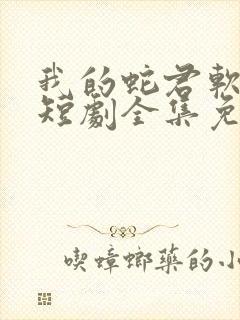 我的蛇君軟
短劇全集免
喫蟑螂藥的小